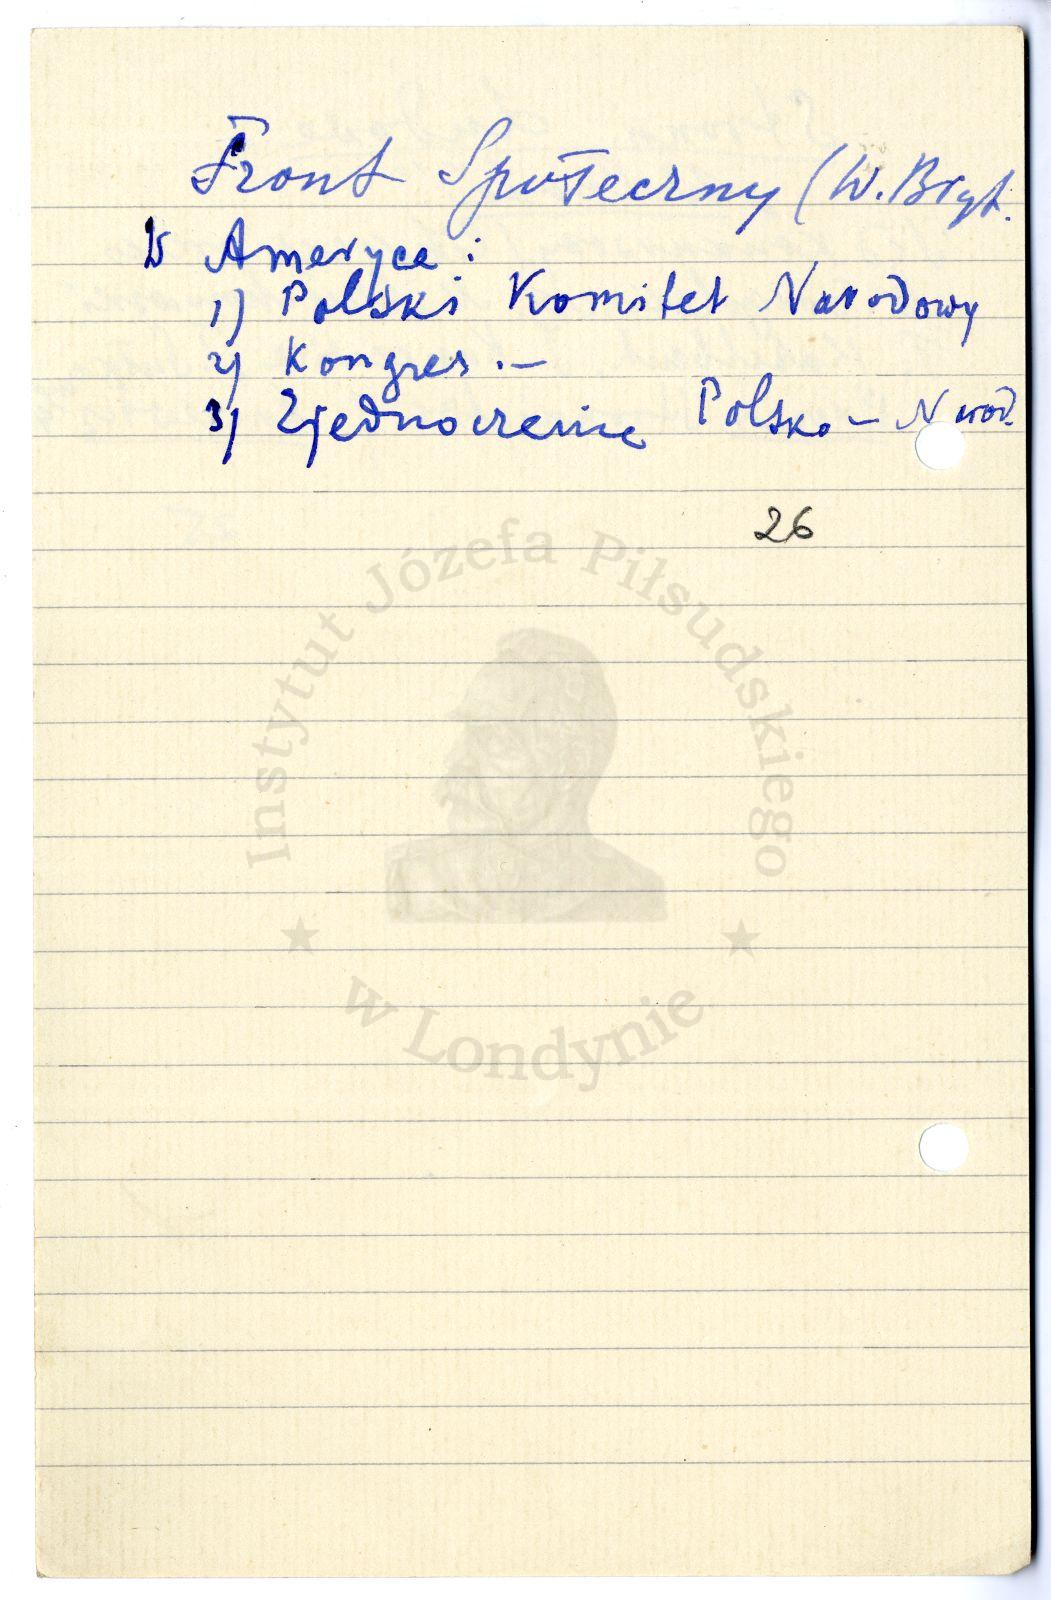 Front Społeczny (W. Bryt.
W Ameryce :
1) Polski Komitet Narodowy
2) Kongres . –
3) Zjednoczenie Polsko – Narod.
26
Instytut Józefa Piłsudskiego
w Londynie